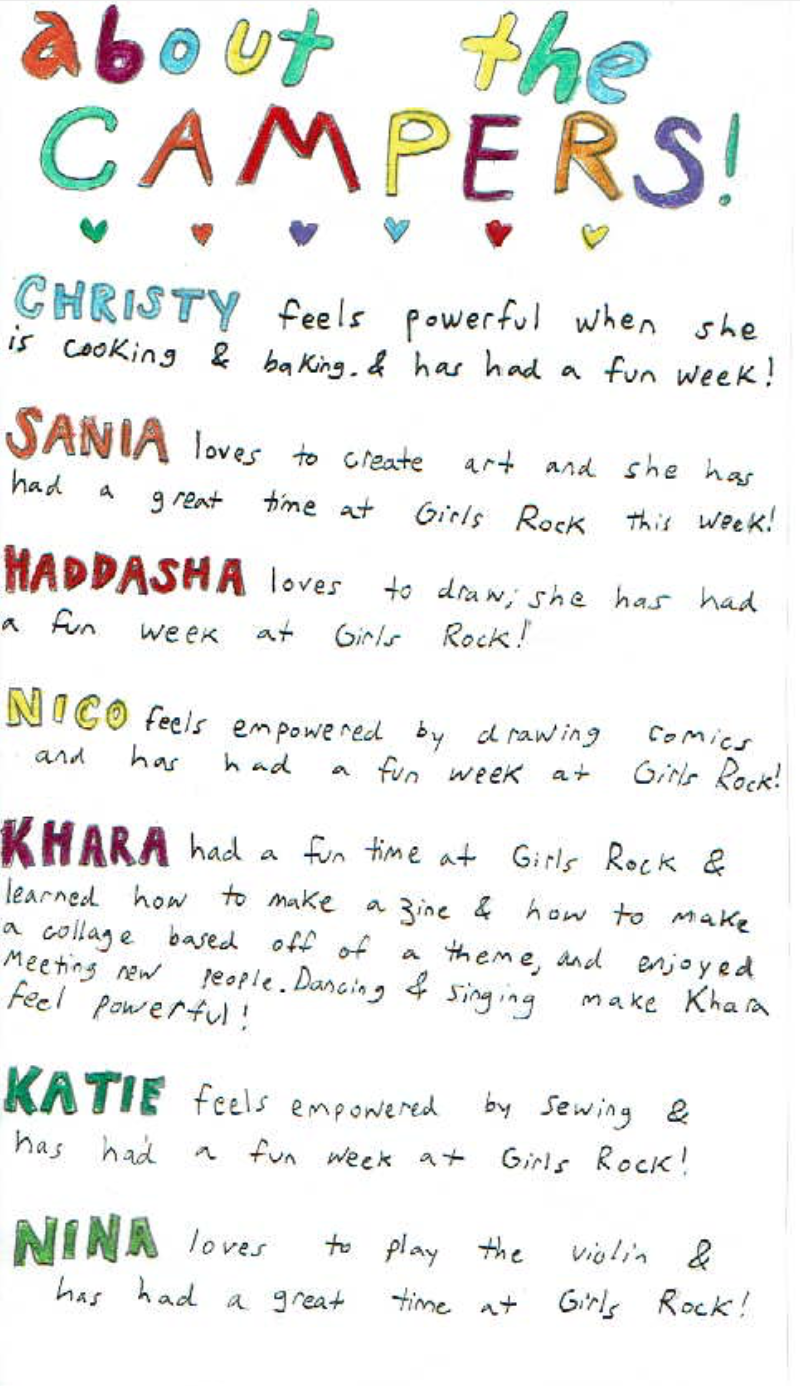 about the
CAMPERS!
CHRISTY feels powerful when she
is cooking & baking. & has had a fun week!
SANIA loves to create art and she has
had a great time at Girls Rock this week!
HADDASHA loves to draw; she has had
a fun week at Girls Rock!
NICO feels empowered by drawing comics
and has had a fun week at Girls Rock!
KHARA had a fun time at Girls Rock &
learned how to make a zine & how to make
a collage based off of a theme, and enjoyed
meeting new people. Dancing & singing make Khara
feel powerful!
KATIE feels empowered by sewing &
has had a fun week at Girls Rock!
NINA loves to play the violin &
has had a great time at Girls Rock!